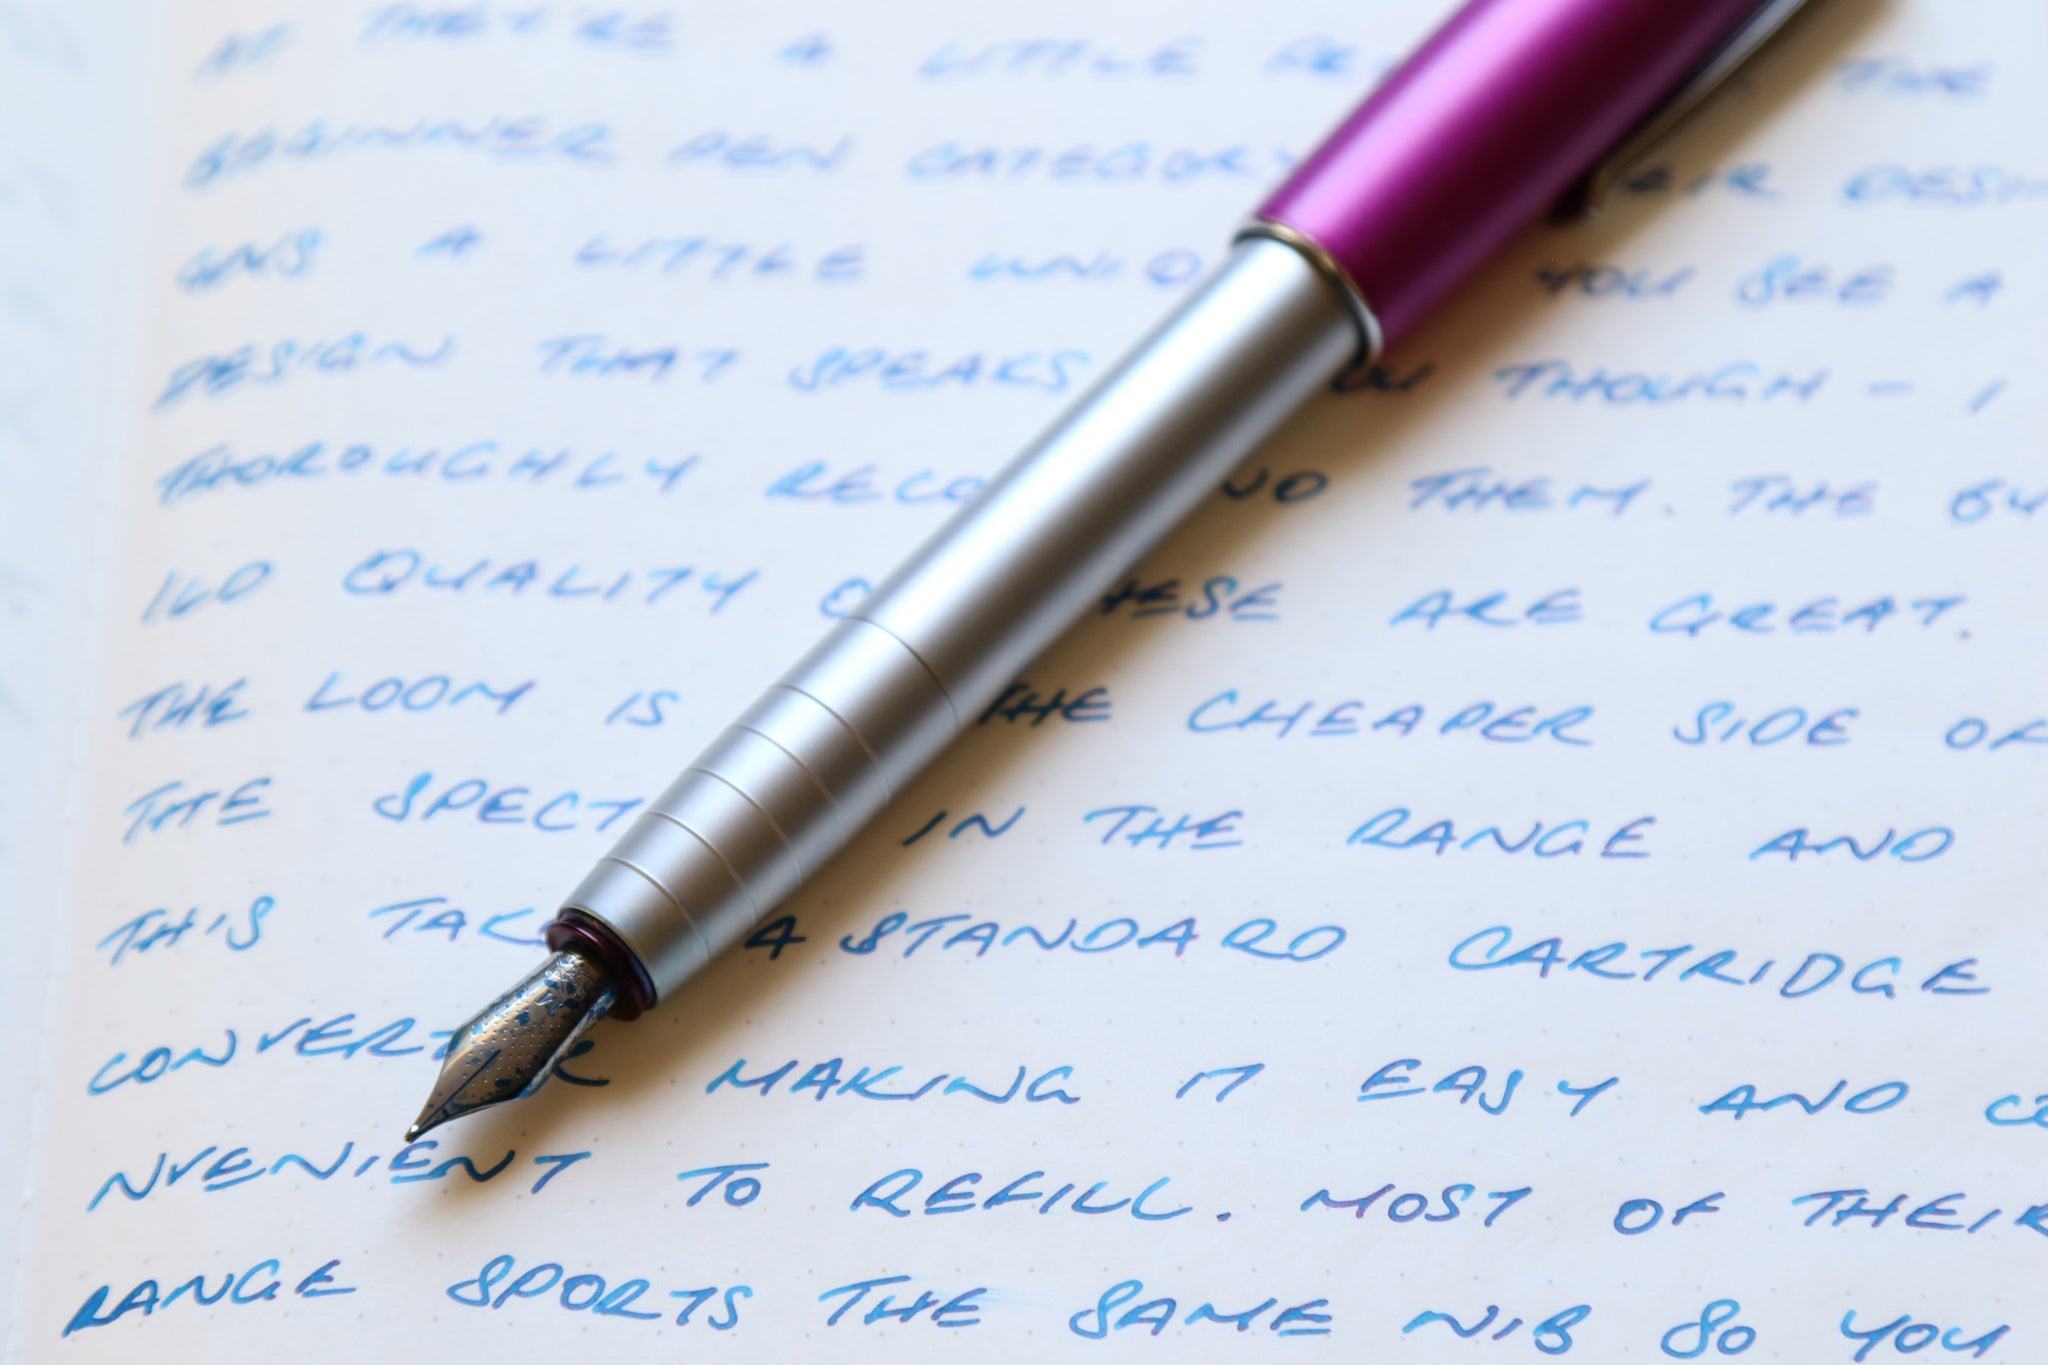 THEY'RE A LITTLE THE
BEGINNER PEN CATEGORY DESI
GNS A LITTLE YOU SEE A
DESIGN THAT SPEAKS THOUGH - I
THOROUGHLY RECO ND THEM. THE BU
ILD QUALITY O HESE ARE GREAT.
THE LOOM IS THE CHEAPER SIDE OF
THE SPECT IN THE RANGE AND
THIS TAK A STANDARD CARTRIDGE
CONVERTER MAKING IT EASY AND CO
NVENIENT TO REFILL. MOST OF THEIR
RANGE SPORTS THE SAME NIB SO YOU